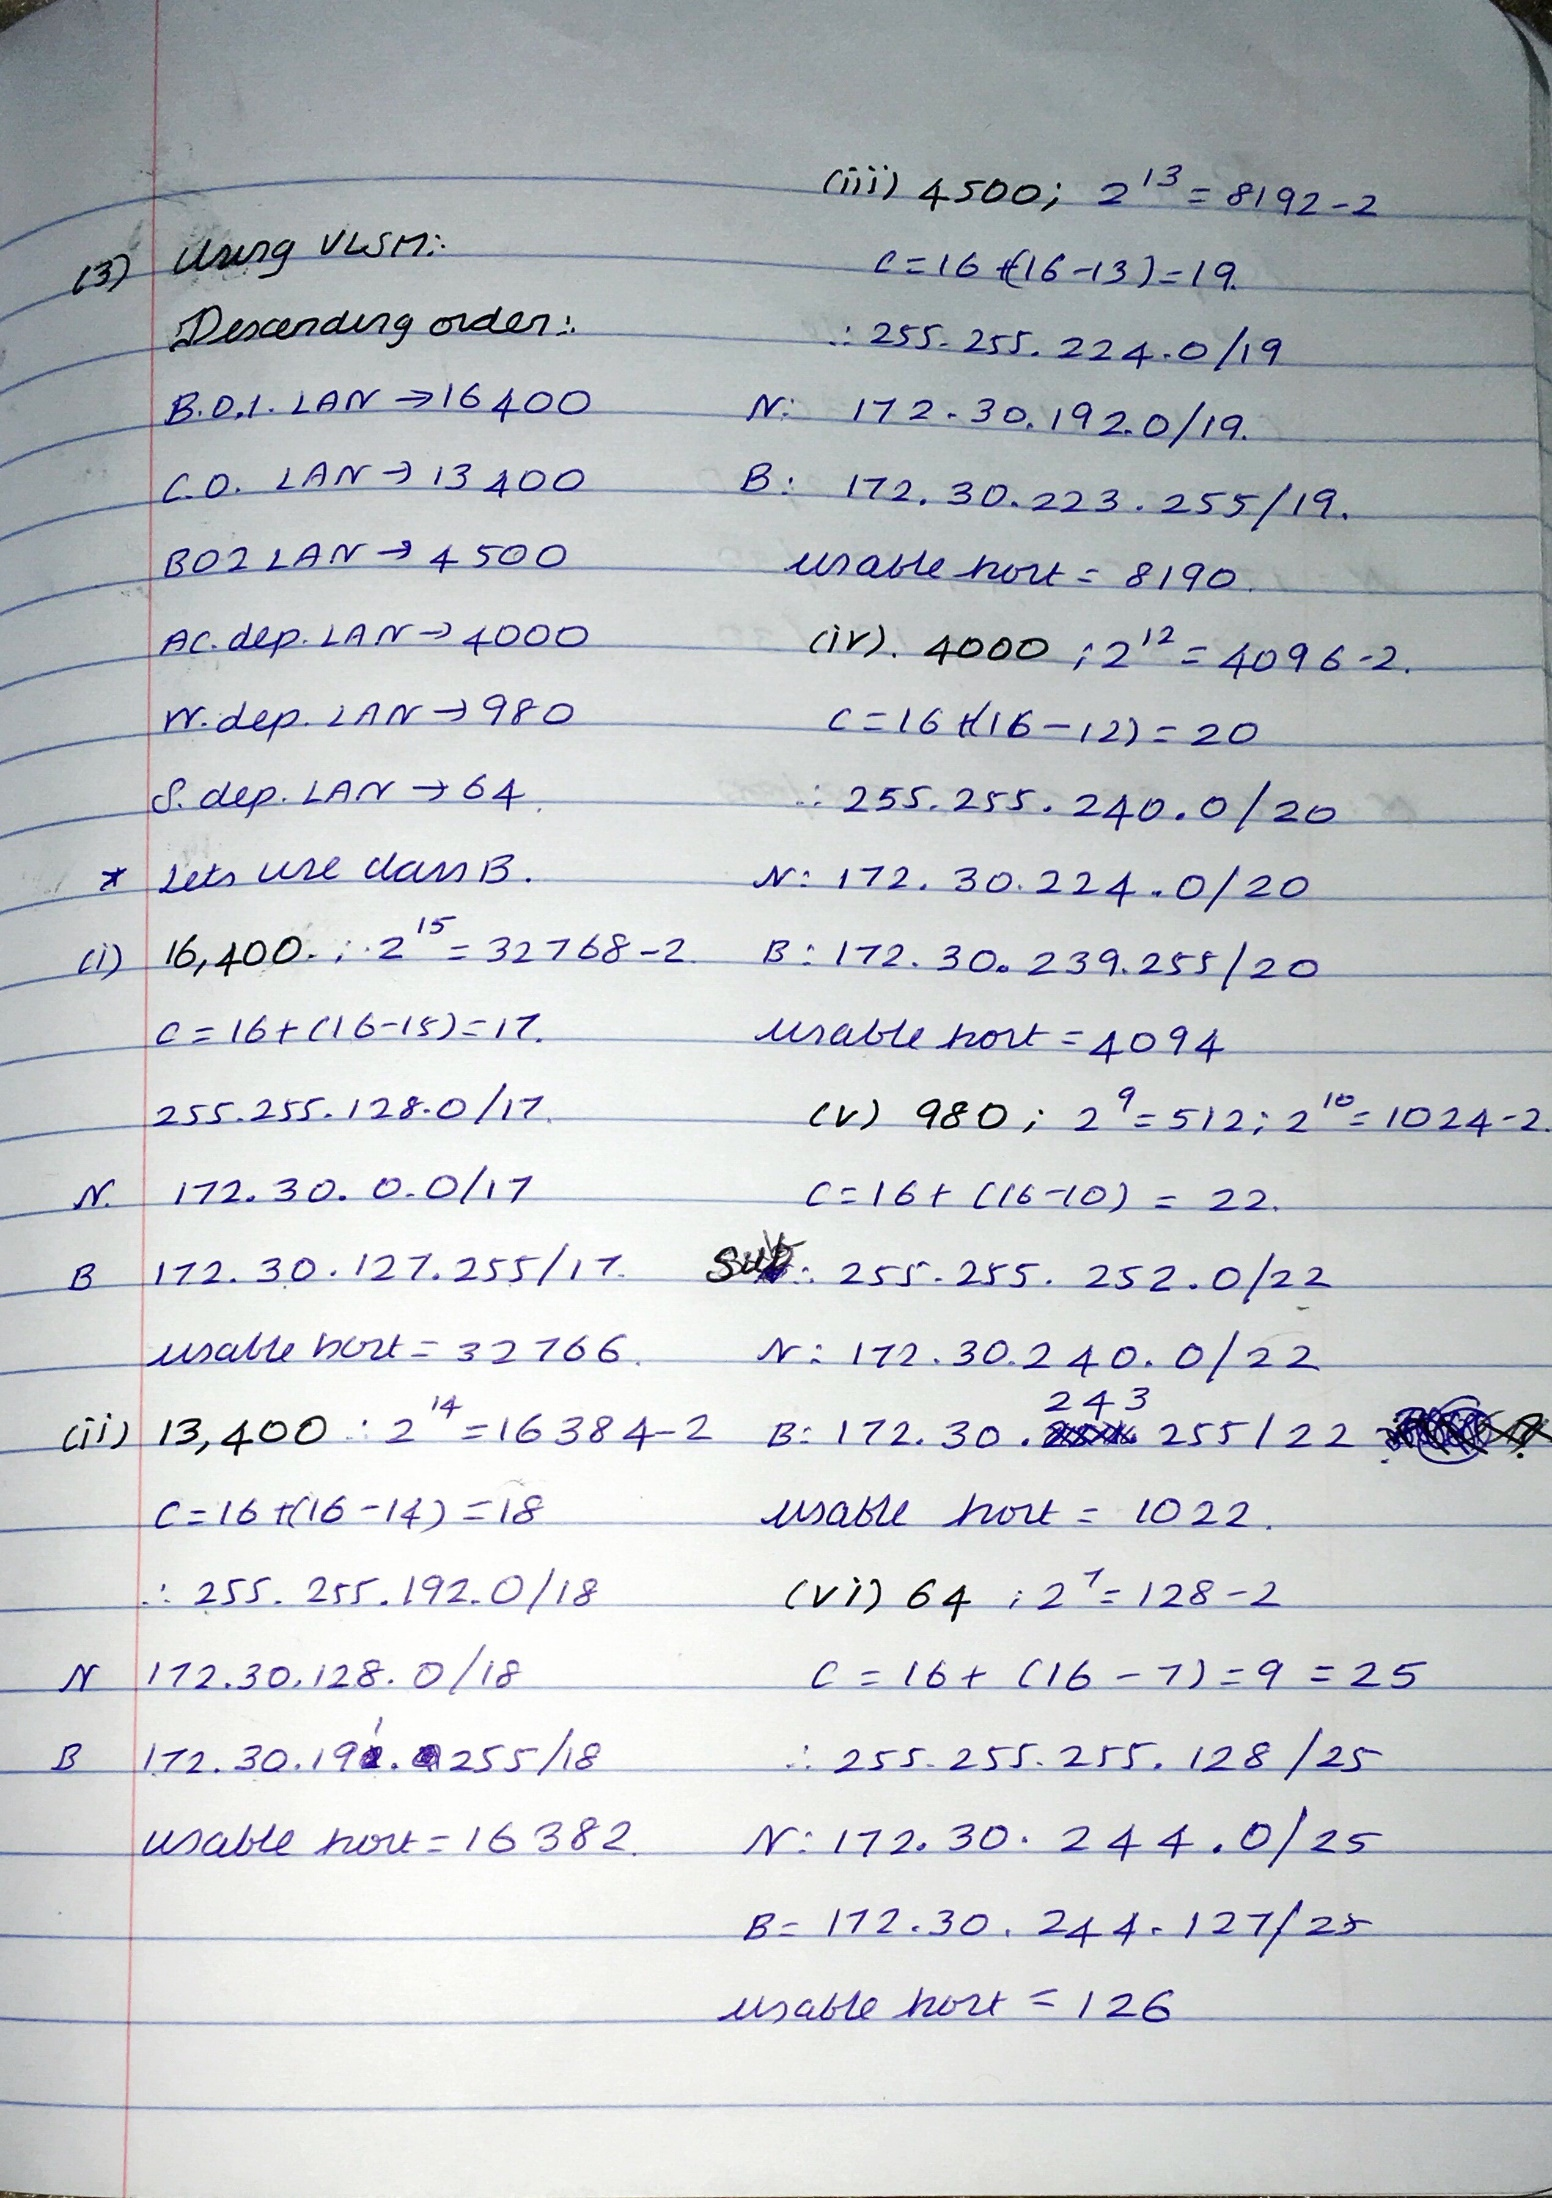 (3) Using VLSM:
Descending order:
B.O.1. LAN → 16400
C.O. LAN → 13400
BO2 LAN → 4500
AC. dep. LAN → 4000
W. dep. LAN → 980
S. dep. LAN → 64
* Lets use class B.
(i) 16,400. ; 2^15 = 32768-2
C = 16+(16-15) = 17.
255.255.128.0/17
N. 172.30.0.0/17
B 172.30.127.255/17.
usable host = 32766.
(ii) 13,400 : 2^14 = 16384-2
C = 16+(16-14) = 18
∴ 255.255.192.0/18
N 172.30.128.0/18
B 172.30.191.255/18
usable host = 16382.
(iii) 4500; 2^13 = 8192-2
C = 16+(16-13) = 19.
∴ 255.255.224.0/19
N: 172.30.192.0/19.
B: 172.30.223.255/19.
usable host = 8190.
(iv). 4000 ; 2^12 = 4096-2.
C = 16+(16-12) = 20
∴ 255.255.240.0/20
N: 172.30.224.0/20
B: 172.30.239.255/20
usable host = 4094
(v) 980; 2^9 = 512; 2^10 = 1024-2.
C = 16+(16-10) = 22.
Sub: 255.255.252.0/22
N: 172.30.240.0/22
B: 172.30.243.255/22
usable host = 1022.
(vi) 64 ; 2^7 = 128-2
C = 16+(16-7) = 9 = 25
∴ 255.255.255.128/25
N: 172.30.244.0/25
B = 172.30.244.127/25
usable host = 126